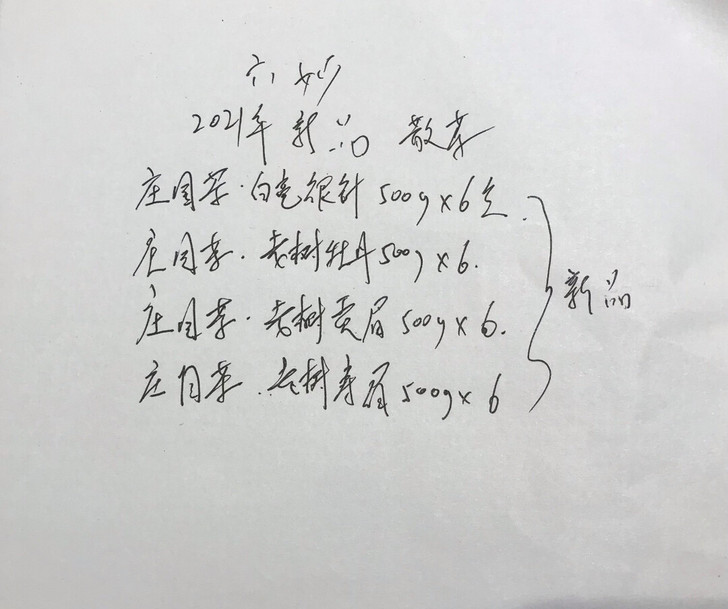 六妙
2021年新品 散茶
庄园茶·白毫银针 500g×6
庄园茶·老树牡丹 500g×6.
庄园茶·老树贡眉 500g×6.
庄园茶·老树寿眉 500g×6
新品